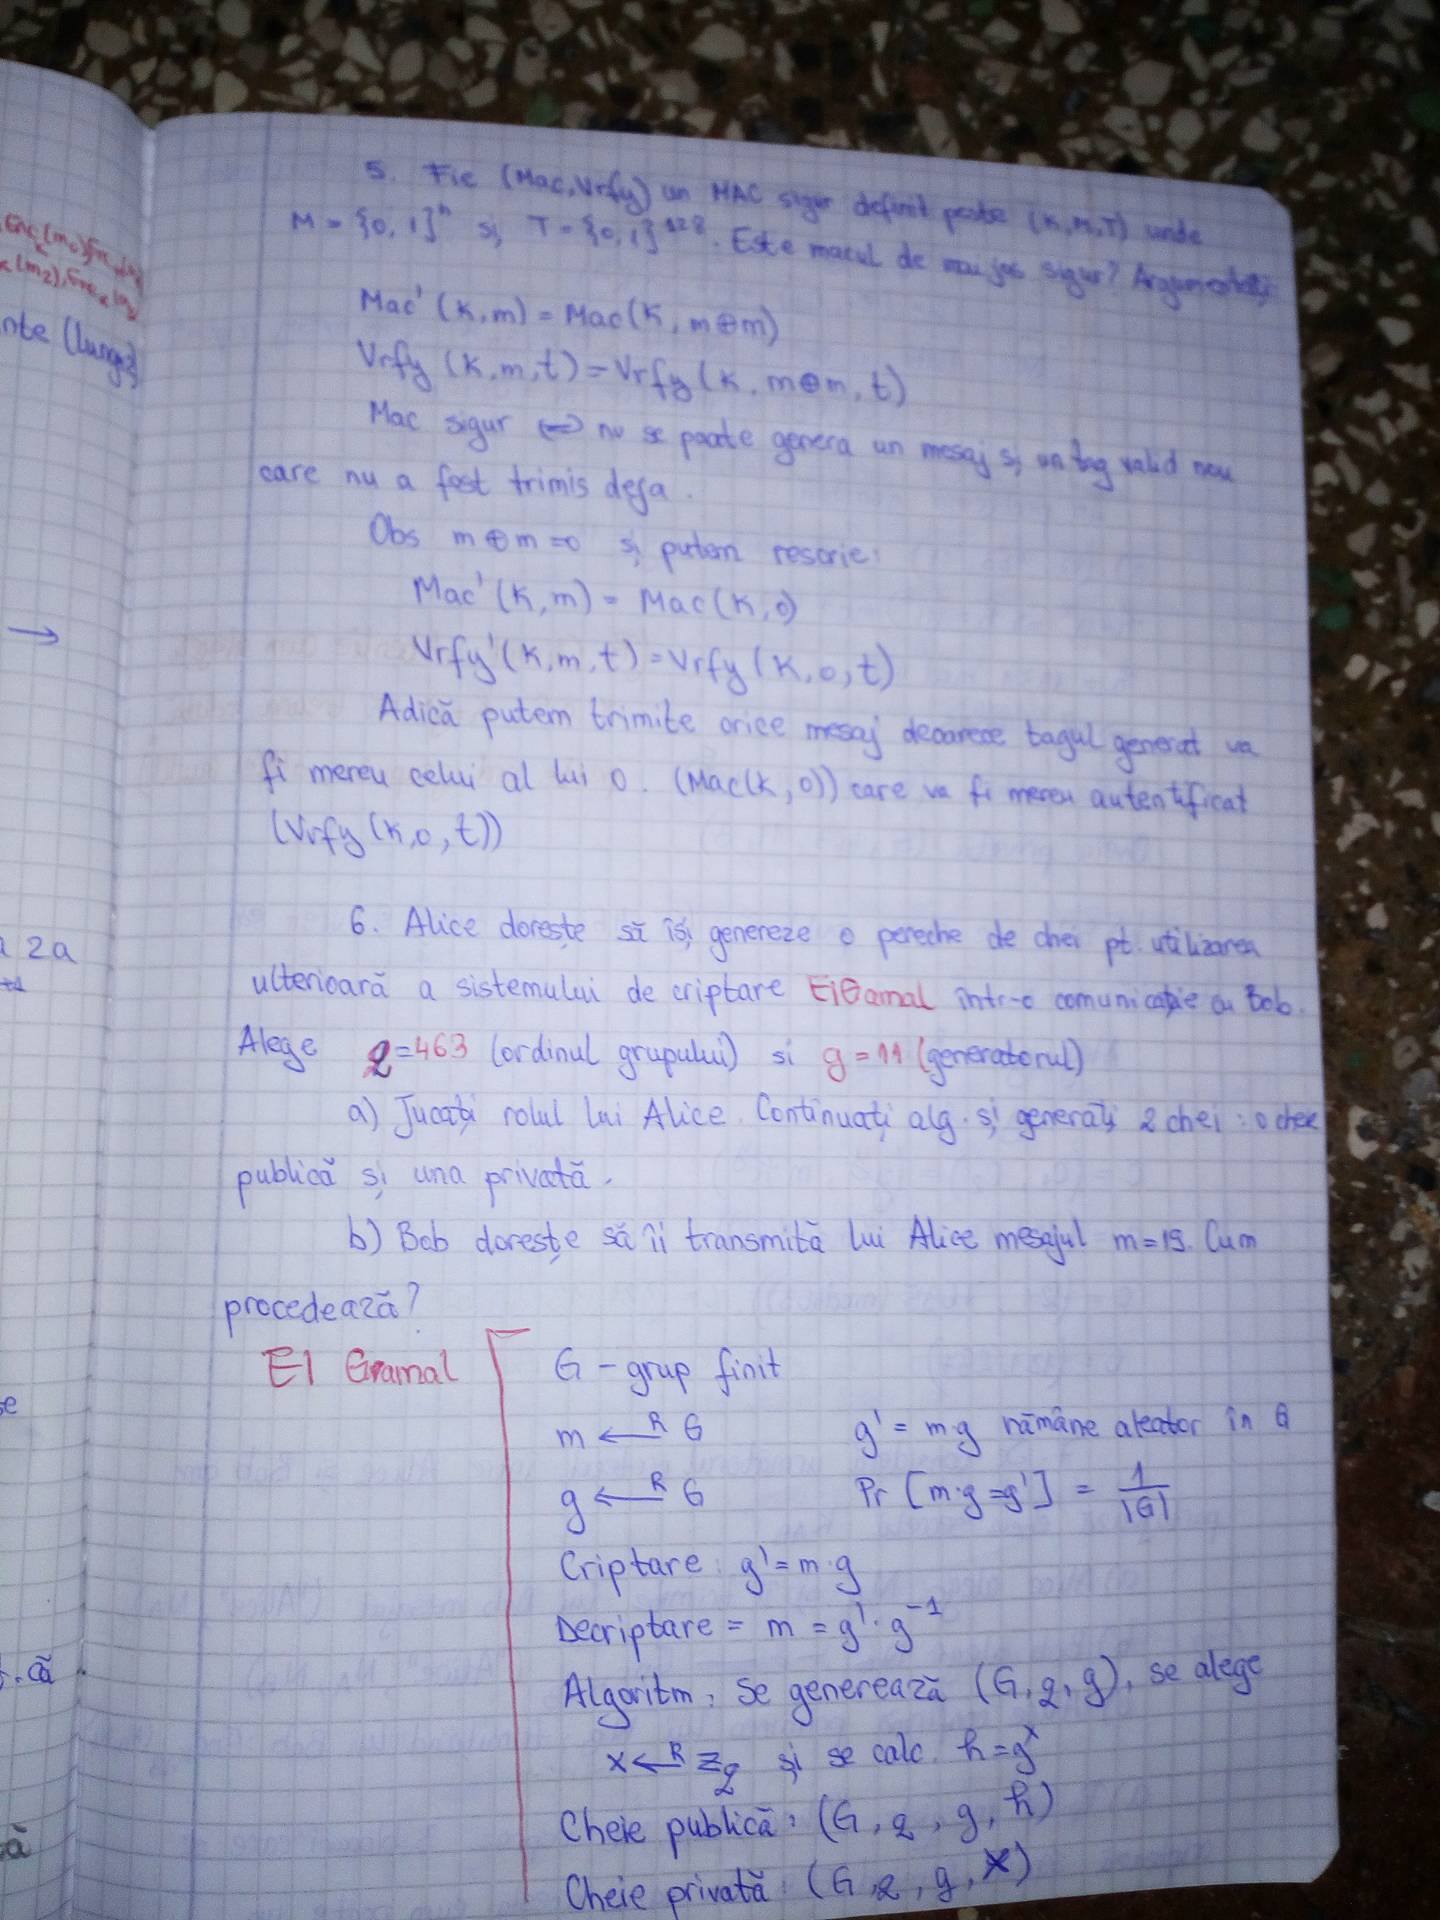 5. Fie (Mac, Vrfy) un MAC sigur definit peste (K, M, T) unde
M = {0, 1}ⁿ și T = {0, 1}¹²⁸. Este macul de mai jos sigur? Argumentați
Mac' (K, m) = Mac(K, m⊕m)
Vrfy (K, m, t) = Vrfy (K, m⊕m, t)
Mac sigur ⇔ nu se poate genera un mesaj și un tag valid nou
care nu a fost trimis deja.
Obs m⊕m=0 și putem rescrie:
Mac' (K, m) = Mac (K, 0)
Vrfy' (K, m, t) = Vrfy (K, 0, t)
Adică putem trimite orice mesaj deoarece tagul generat va
fi mereu celui al lui 0. (Mac(K, 0)) care va fi mereu autentificat
(Vrfy (K, 0, t))
6. Alice dorește să își genereze o pereche de chei pt. utilizarea
ulterioară a sistemului de criptare ElGamal într-o comunicație cu Bob.
Alege q=463 (ordinul grupului) si g=11 (generatorul)
a) Jucați rolul lui Alice. Continuați alg. și generați 2 chei: o cheie
publică și una privată.
b) Bob dorește să îi transmită lui Alice mesajul m=19. Cum
procedează?
El Gamal
G - grup finit
m ←ᴿ G g' = m·g rămâne aleator în G
g ←ᴿ G Pr [m·g=g'] = 1/|G|
Criptare: g' = m·g
Decriptare = m = g'·g⁻¹
Algoritm: Se generează (G, q, g), se alege
x ←ᴿ Zq și se calc. h=gˣ
Cheie publică: (G, q, g, h)
Cheie privată: (G, q, g, x)
Encₖ(m₀)
nte (lungă)
→
2a
că